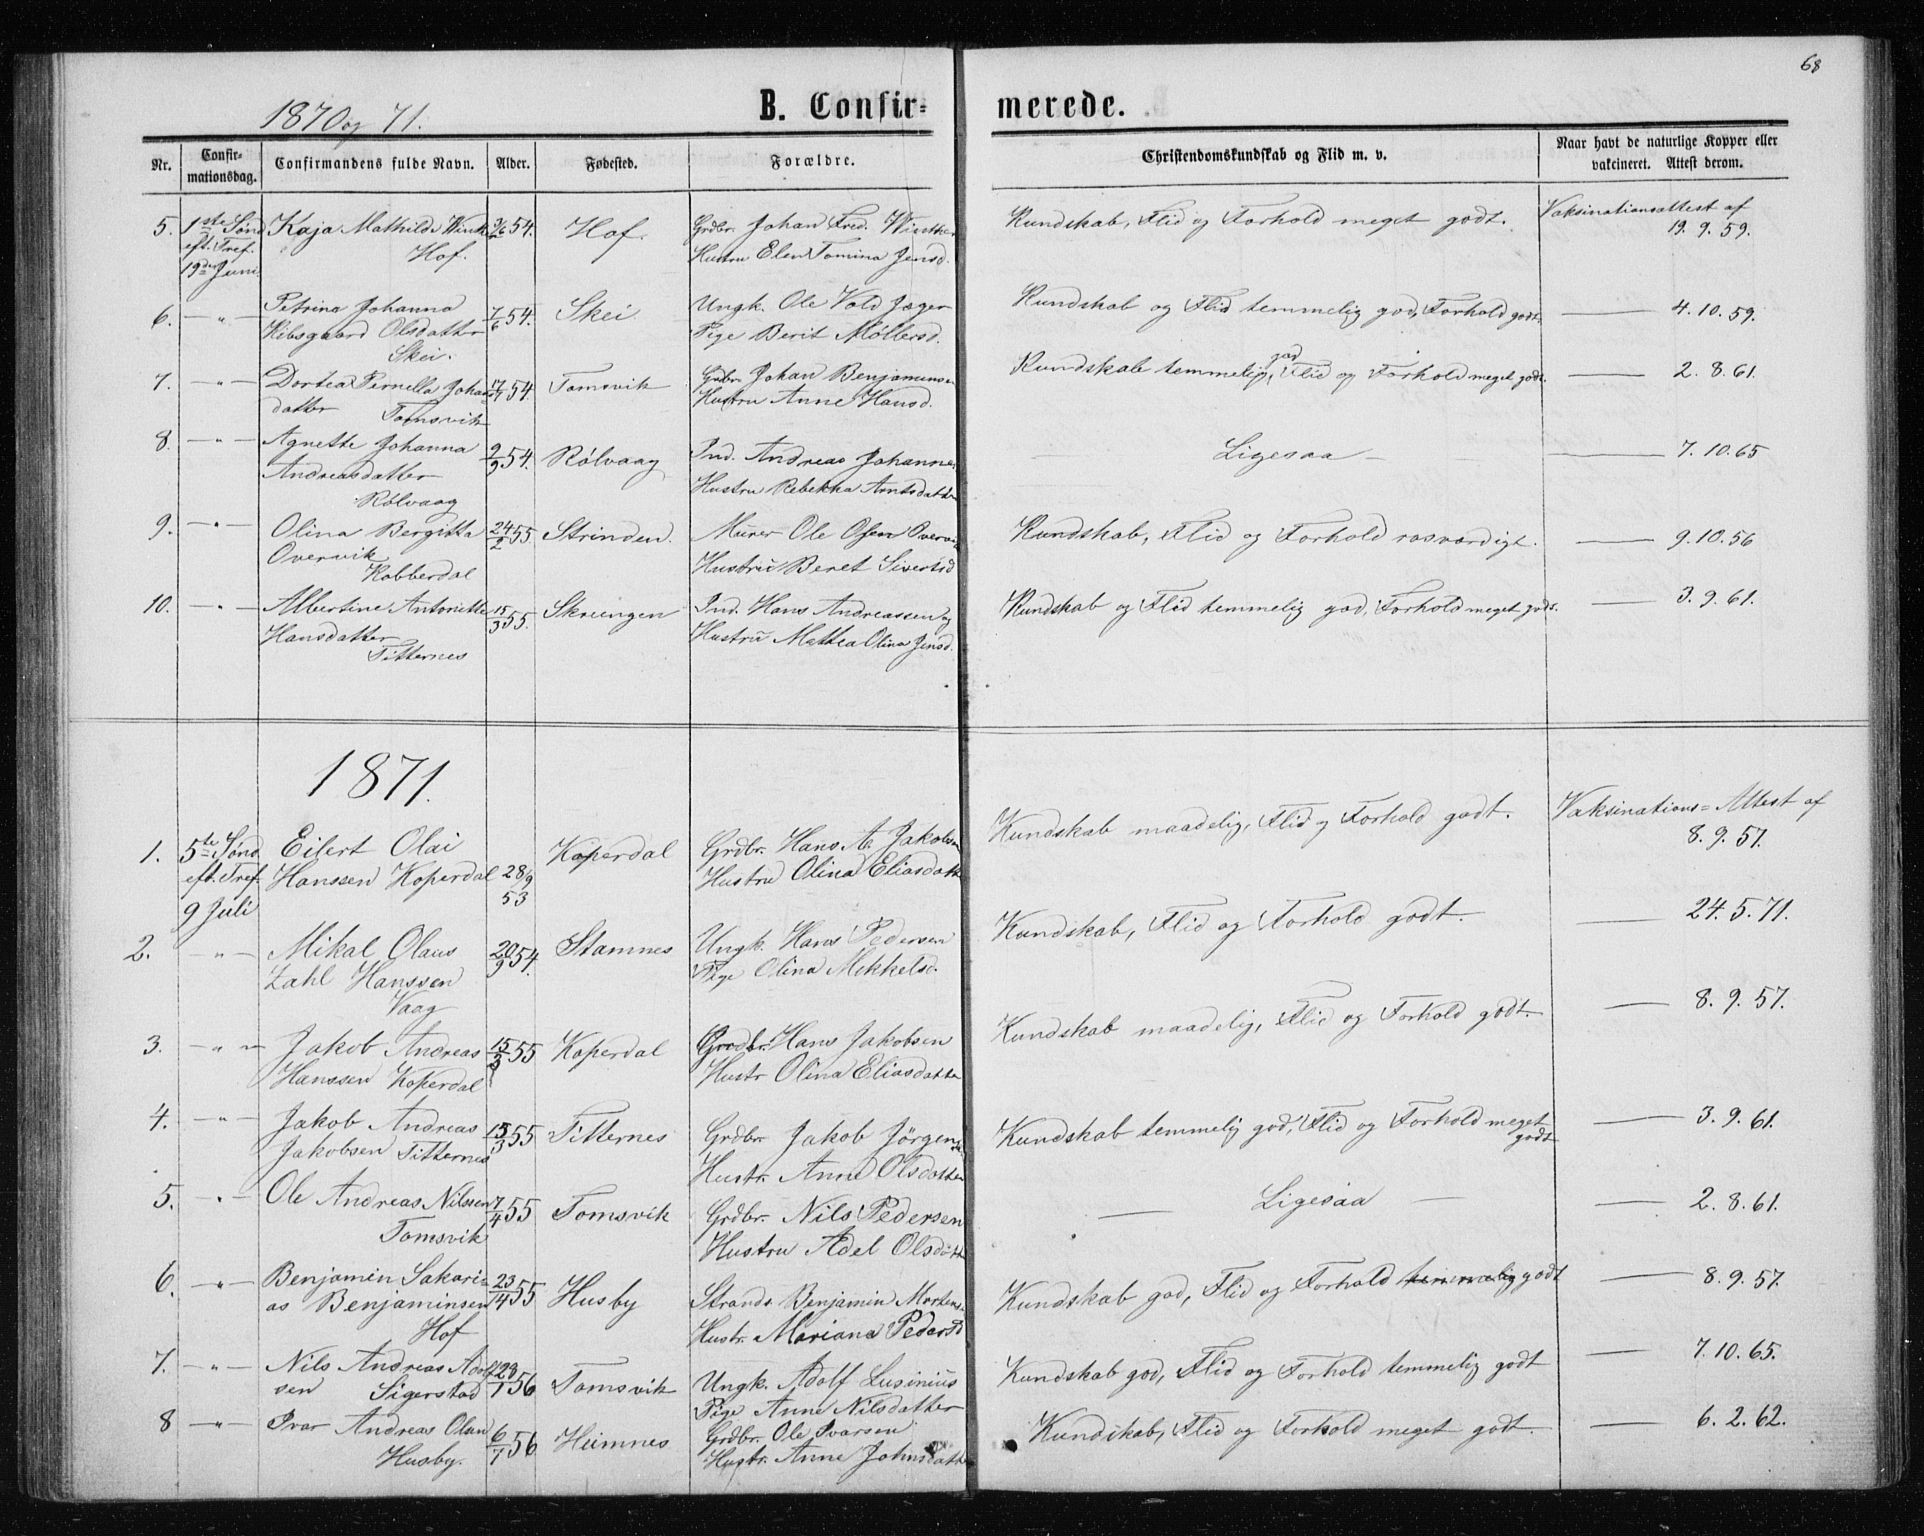 68
1870 og 71.
B. Confirmerede.
Nr. Confirmationsdag. Confirmandens fulde Navn. Alder. Fødested. Forældre. Christendomskundskab og Flid m. v. Naar havt de naturlige Kopper eller vakcineret. Attest derom.
5. 1ste Sønd Kaja Mathilde 54. Hof. Grdbr. Johan Fred. Kundskab, Flid og Forhold meget godt. Vaksinationsattest af
eft. Tref. Hof. Hustru Elen Tomina Jensd. 19. 9. 59.
19de Juni
6. — " — Petrina Johanna 7/6 54. Skei Ungk. Ole Vold Jæger Kundskab og Flid temmelig god, Forhold godt. — 4. 10. 59.
Hibsgaard Olsdatter Pige Berit Möllersd.
Skei.
7. — " — Dortea Pernella Johan 54. Tomsvik Grdbr. Johan Benjaminsen Kundskab temmelig god, Flid og Forhold meget godt. — 2. 8. 61.
datter Tomsvik Hustru Anne Hansd.
8. — " — Agnette Johanna 9/9 54. Rölvaag Ind. Andreas Johannes Ligesaa — — 7. 10. 65
Andreasdatter Hustru Rebekka Arntsdatter
Rölvaag
9. — " — Olina Bergitta 24/2 55. Strinden. Murer Ole Olsen Overvik Kundskab, Flid og Forhold rosværdigt. — 9. 10. 56
Overvik Hustru Beret Sivertsd
Kobberdal
10. — " — Albertine Antoriette 15/3 55. Skreingen Ind. Hans Andreassen og Kundskab og Flid temmelig god, Forhold meget godt. — 3. 9. 61.
Hansdatter Hustru Mettea Olina Jensd.
Titternes
1871.
1. 5te Sønd Eilert Olai Koperdal Grdbr. Hans A. Jakobsen Kundskab maadelig, Flid og Forhold godt. Vaksinations-Attest af
eft. Tref. Hanssen Koperdal 28/9 53 Hustru Olina Eliasdatt 8. 9. 57.
9 Juli
2. — " — Mikal Olaus 20/9 54. Stamnes Ungk. Hans Pedersen Kundskab, Flid og Forhold godt. — 24. 5. 71.
Zahl Hanssen Pige Olina Mikkelsd.
Vaag
3. — " — Jakob Andreas 15/3 55 Koperdal Grdbr. Hans Jakobsen Kundskab maadelig, Flid og Forhold godt. — 8. 9. 57.
Hanssen Koperdal Hustr. Olina Eliasdatter
4. — " — Jakob Andreas 15/3 55 Titternes Grdbr. Jakob Jörgensen Kundskab temmelig god, Flid og Forhold meget godt — 3. 9. 61.
Jakobsen Titternes Hustr. Anne Olsdatter
5. — " — Ole Andreas Nilssen 7/4 55 Tomsvik Grdbr. Nils Pedersen — Ligesaa — — 2. 8. 61.
Tomsvik Hustru Adel Olsdatt
6. — " — Benjamin Sakari- 23/4 55 Husby Strands. Benjamin Mortens. Kundskab god, Flid og Forhold temmelig godt — 8. 9. 57.
as Benjaminsen Hustr. Mariana Pedersd
Hof
7. — " — Nils Andreas Adolf 23/1 56 Tomsvik Ungk. Adolf Lusinius Kundskab god, Flid og Forhold temmelig godt — 7. 10. 65.
sen Sigerstad Pige Anne Nilsdatter
8 — " — Ivar Andreas Olsen 6/7 56 Heimnes Grdbr. Ole Ivarsen Kundskab, Flid og Forhold meget godt. — 6. 2. 62.
Husby. Hustr. Anne Johnsdatt